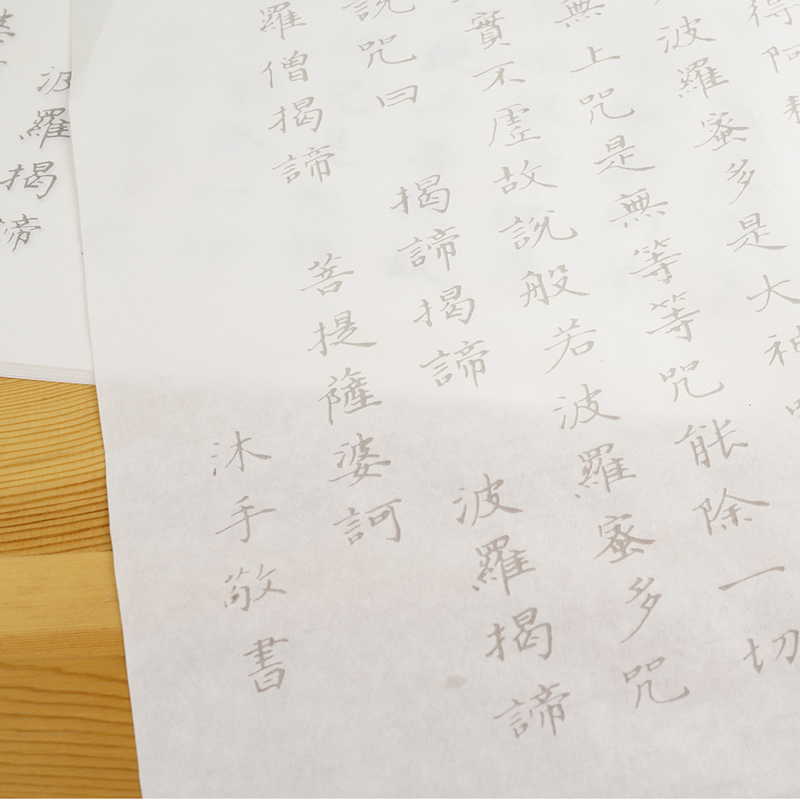 得阿耨
波羅蜜多是大神
無上咒是無等等咒能除一切
實不虛故說般若波羅蜜多咒
說咒曰 揭諦揭諦 波羅揭諦
羅僧揭諦 菩提薩婆訶
沐手敬書
波羅揭諦